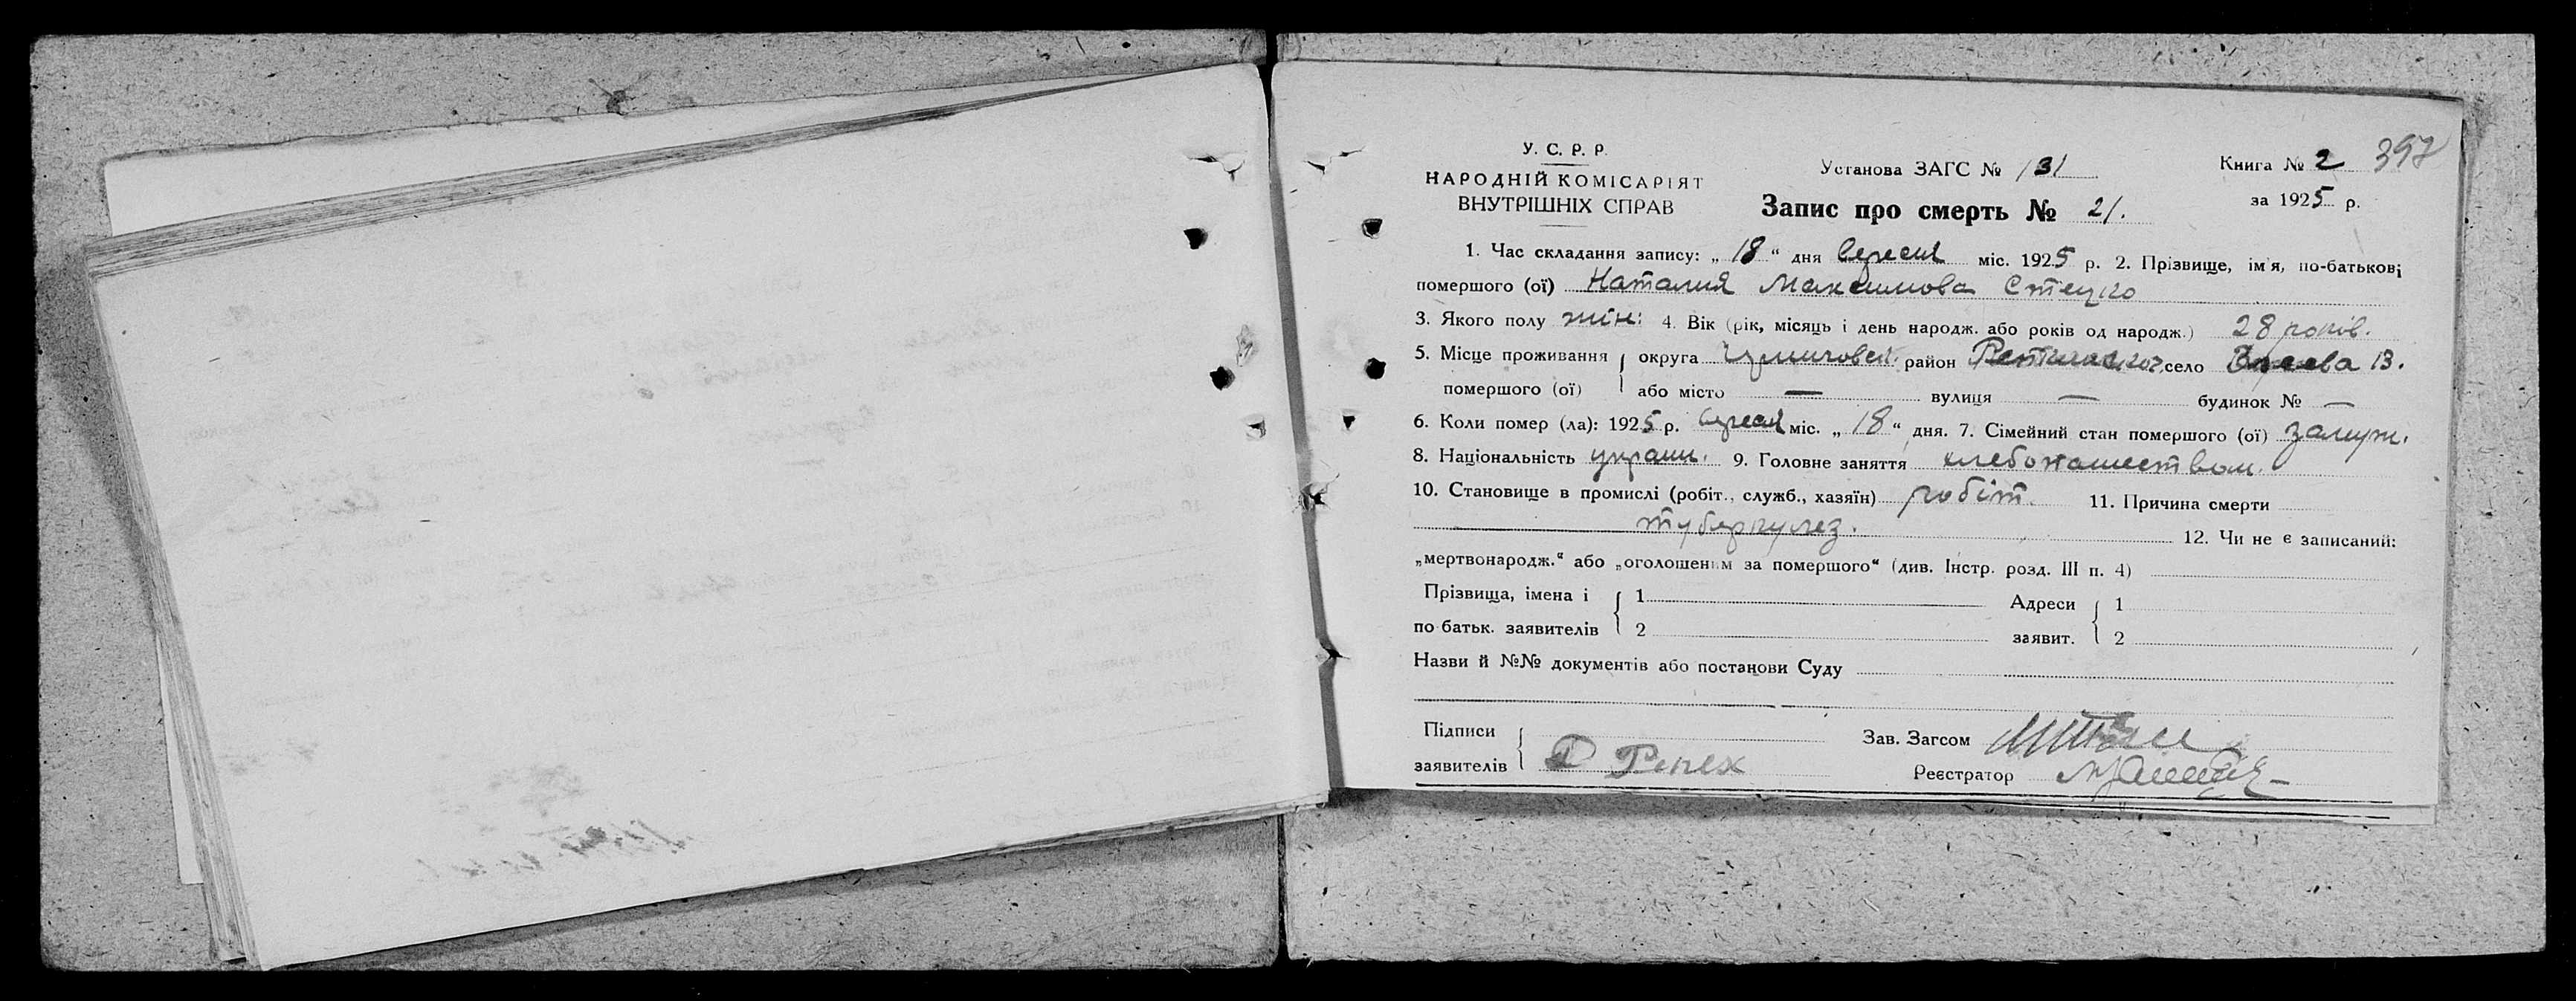 У. С. Р. Р.
НАРОДНІЙ КОМІСАРІЯТ
ВНУТРІШНІХ СПРАВ
Установа ЗАГС № 131
Книга № 2 397
Запис про смерть № 21.
за 1925 р.
1. Час складання запису: „ 18 “ дня Вересня міс. 1925 р. 2. Прізвище, ім'я, по-батькові
помершого (ої) Наталия Максимова Стецко
3. Якого полу жін: 4. Вік (рік, місяць і день народж. або років од народж.) 28 років.
5. Місце проживання помершого (ої) округа район село В.
або місто — вулиця — будинок № —
6. Коли помер (ла): 1925 р. Вересня міс. „ 18 “ дня. 7. Сімейний стан помершого (ої) замуж.
8. Національність украин. 9. Головне заняття хлебопашеством.
10. Становище в промислі (робіт., служб., хазяїн) робіт. 11. Причина смерти
туберкулез. 12. Чи не є записаний:
„мертвонародж.“ або „оголошеним за помершого“ (див. Інстр. розд. III п. 4)
Прізвища, імена і по батьк. заявителів 1 2
Адреси заявит. 1 2
Назви й №№ документів або постанови Суду
Підписи заявителів Репех
Зав. Загсом
Реєстратор